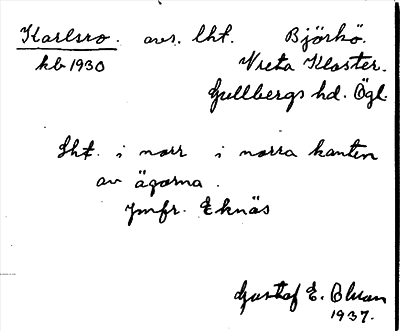 Karlsro. avs. lht. Björkö.
kb 1930 Vreta Kloster.
Gullbergs hd. Ögl.
Lht. i norr i norra kanten
av ägorna.
Jmfr. Eknäs
Gustaf E. Bluan
1937.